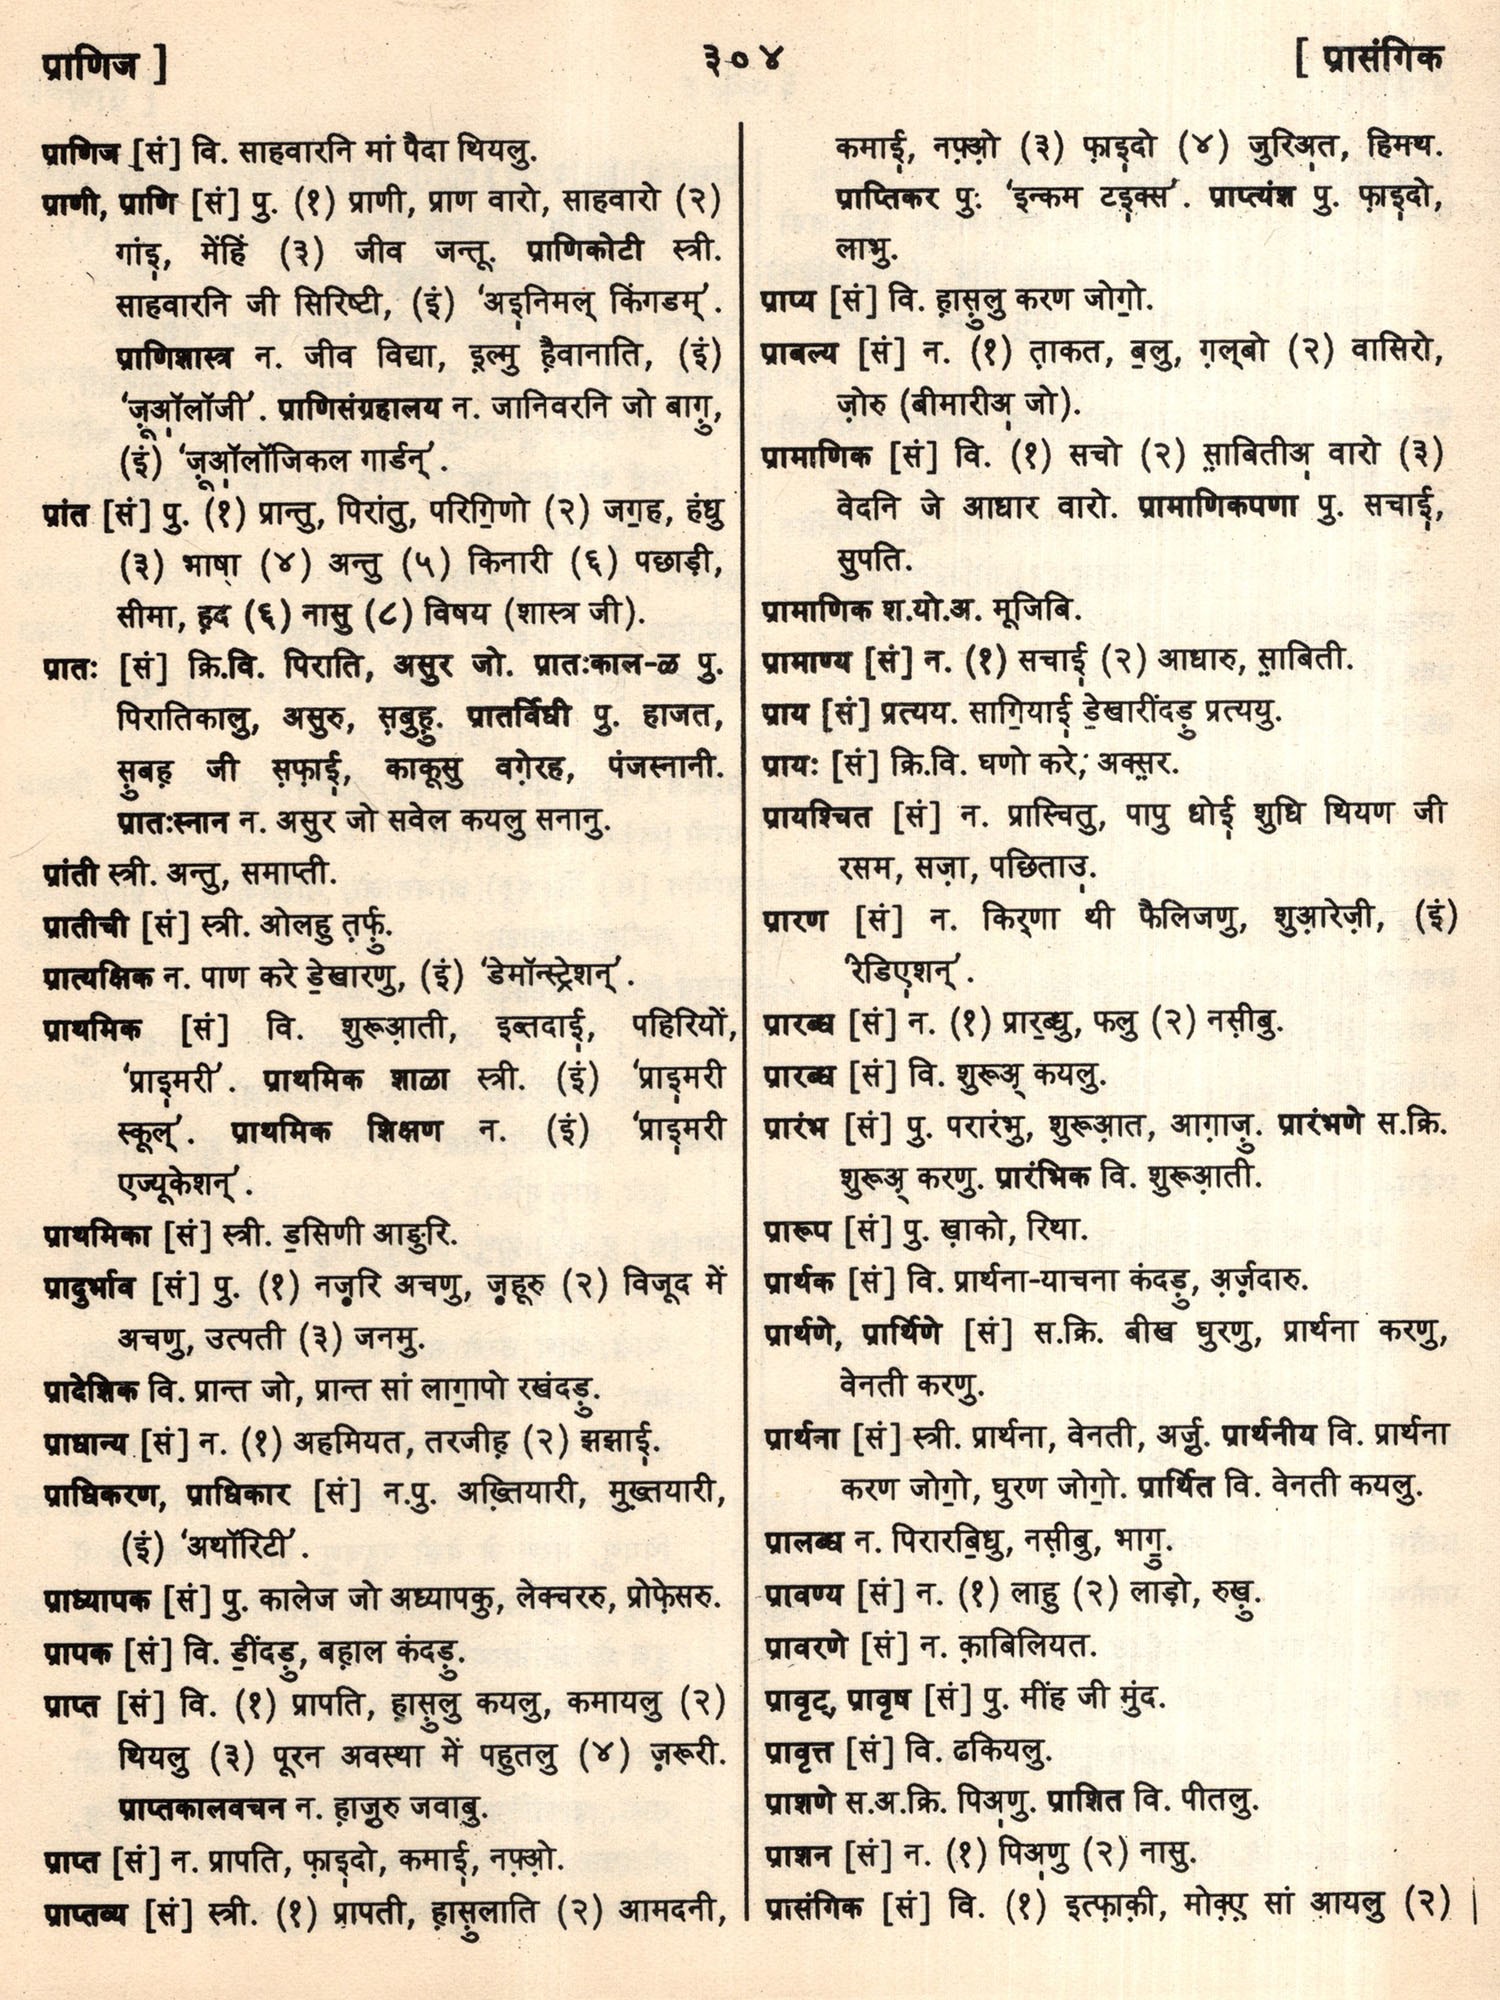 प्राणिज ]
३०४
[ प्रासंगिक
प्राणिज [सं] वि. साहवारनि मां पैदा थियलु.
प्राणी, प्राणि [सं] पु. (१) प्राणी, प्राण वारो, साहवारो (२)
गांइ॒, मेंहिं (३) जीव जन्तू. प्राणिकोटी स्त्री.
साहवारनि जी सिरिष्टी, (इं) ‘अइ॒निमल् किंगडम्’.
प्राणिशास्त्र न. जीव विद्या, इ़ल्मु है़वानाति, (इं)
‘ज़ूऑ॒लॉजी’. प्राणिसंग्रहालय न. जानिवरनि जो बाग़ु,
(इं) ‘ज़ूऑ॒लॉजिकल गार्डन्’.
प्रांत [सं] पु. (१) प्रान्तु, पिरांतु, परिगि॒णो (२) जग॒ह, हंधु
(३) भाषा (४) अन्तु (५) किनारी (६) पछाड़ी,
सीमा, ह़द (६) नासु (८) विषय (शास्त्र जी).
प्रातः [सं] क्रि.वि. पिराति, असुर जो. प्रातःकाल-ळ पु.
पिरातिकालु, असुरु, स़बुह़ु. प्रातर्विधी पु. हाजत,
सु़बह़ जी स़फ़ाई॒, काकूसु वगे़रह, पंजस्नानी.
प्रातःस्नान न. असुर जो सवेल कयलु सनानु.
प्रांती स्त्री. अन्तु, समाप्ती.
प्रातीची [सं] स्त्री. ओलहु त़र्फ़ु.
प्रात्यक्षिक न. पाण करे डे॒खारणु, (इं) ‘डेमॉन्स्ट्रेशन्’.
प्राथमिक [सं] वि. शुरूआ़ती, इब्तदाई॒, पहिरियों,
‘प्राइ॒मरी’. प्राथमिक शाळा स्त्री. (इं) ‘प्राइ॒मरी
स्कूल्’. प्राथमिक शिक्षण न. (इं) ‘प्राइ॒मरी
एज्यूकेशन्’.
प्राथमिका [सं] स्त्री. ड॒सिणी आङुरि.
प्रादुर्भाव [सं] पु. (१) नज़रि अचणु, ज़हूरु (२) विजूद में
अचणु, उत्पती (३) जनमु.
प्रादेशिक वि. प्रान्त जो, प्रान्त सां लागा॒पो रखंदड़ु.
प्राधान्य [सं] न. (१) अहमियत, तरजीह़ (२) झझाई॒.
प्राधिकरण, प्राधिकार [सं] न.पु. अख़्तियारी, मुख़्तयारी,
(इं) ‘अथॉरिटी’.
प्राध्यापक [सं] पु. कालेज जो अध्यापकु, लेक्चररु, प्रोफ़ेसरु.
प्रापक [सं] वि. डीं॒दड़ु, बह़ाल कंदड़ु.
प्राप्त [सं] वि. (१) प्रापति, ह़ासु़लु कयलु, कमायलु (२)
थियलु (३) पूरन अवस्था में पहुतलु (४) ज़रूरी.
प्राप्तकालवचन न. ह़ाज़ुरु जवाबु.
प्राप्त [सं] न. प्रापति, फ़ाइ॒दो, कमाई॒, नफ़्ओ़.
प्राप्तव्य [सं] स्त्री. (१) प्रापती, ह़ासु़लाति (२) आमदनी,
कमाई॒, नफ़्ओ़ (३) फ़ाइ॒दो (४) जुरिअ॒त, हिमथ.
प्राप्तिकर पु. ‘इन्कम टइ॒क्स’. प्राप्त्यंश पु. फ़ाइ॒दो,
लाभु.
प्राप्य [सं] वि. ह़ासु़लु करण जोगो॒.
प्राबल्य [सं] न. (१) त़ाकत, ब॒लु, ग़ल्बो (२) वासिरो,
ज़ोरु (बीमारीअ॒ जो).
प्रामाणिक [सं] वि. (१) सचो (२) सा़बितीअ॒ वारो (३)
वेदनि जे आधार वारो. प्रामाणिकपणा पु. सचाई॒,
सुपति.
प्रामाणिक श.यो.अ. मूजिबि.
प्रामाण्य [सं] न. (१) सचाई॒ (२) आधारु, सा़बिती.
प्राय [सं] प्रत्यय. सागि॒याई॒ डे॒खारींदड़ु प्रत्ययु.
प्रायः [सं] क्रि.वि. घणो करे, अक्स़र.
प्रायश्चित [सं] न. प्रास्चितु, पापु धोई॒ शुधि थियण जी
रसम, सज़ा, पछिताउ॒.
प्रारण [सं] न. किर्णा थी फैलिजणु, शुआ़रेज़ी, (इं)
‘रेडिए॒शन्’.
प्रारब्ध [सं] न. (१) प्रारब्॒धु, फलु (२) नस़ीबु.
प्रारब्ध [सं] वि. शुरूअ़् कयलु.
प्रारंभ [सं] पु. परारंभु, शुरूआ़त, आग़ाज़ु. प्रारंभणे स.क्रि.
शुरूअ़् करणु. प्रारंभिक वि. शुरूआ़ती.
प्रारूप [सं] पु. ख़ाको, रिथा.
प्रार्थक [सं] वि. प्रार्थना-याचना कंदड़ु, अ़र्ज़दारु.
प्रार्थणे, प्रार्थिणे [सं] स.क्रि. बीख घुरणु, प्रार्थना करणु,
वेनती करणु.
प्रार्थना [सं] स्त्री. प्रार्थना, वेनती, अर्ज़ु. प्रार्थनीय वि. प्रार्थना
करण जोगो॒, घुरण जोगो॒. प्रार्थित वि. वेनती कयलु.
प्रालब्ध न. पिरारबि॒धु, नस़ीबु, भागु॒.
प्रावण्य [सं] न. (१) लाहु (२) लाड़ो, रुख़ु.
प्रावरणे [सं] न. क़ाबिलियत.
प्रावृट्, प्रावृष [सं] पु. मींह जी मुंद.
प्रावृत्त [सं] वि. ढकियलु.
प्राशणे स.अ.क्रि. पिअ॒णु. प्राशित वि. पीतलु.
प्राशन [सं] न. (१) पिअ॒णु (२) नासु.
प्रासंगिक [सं] वि. (१) इत्फ़ाक़ी, मोक़्ए़ सां आयलु (२)